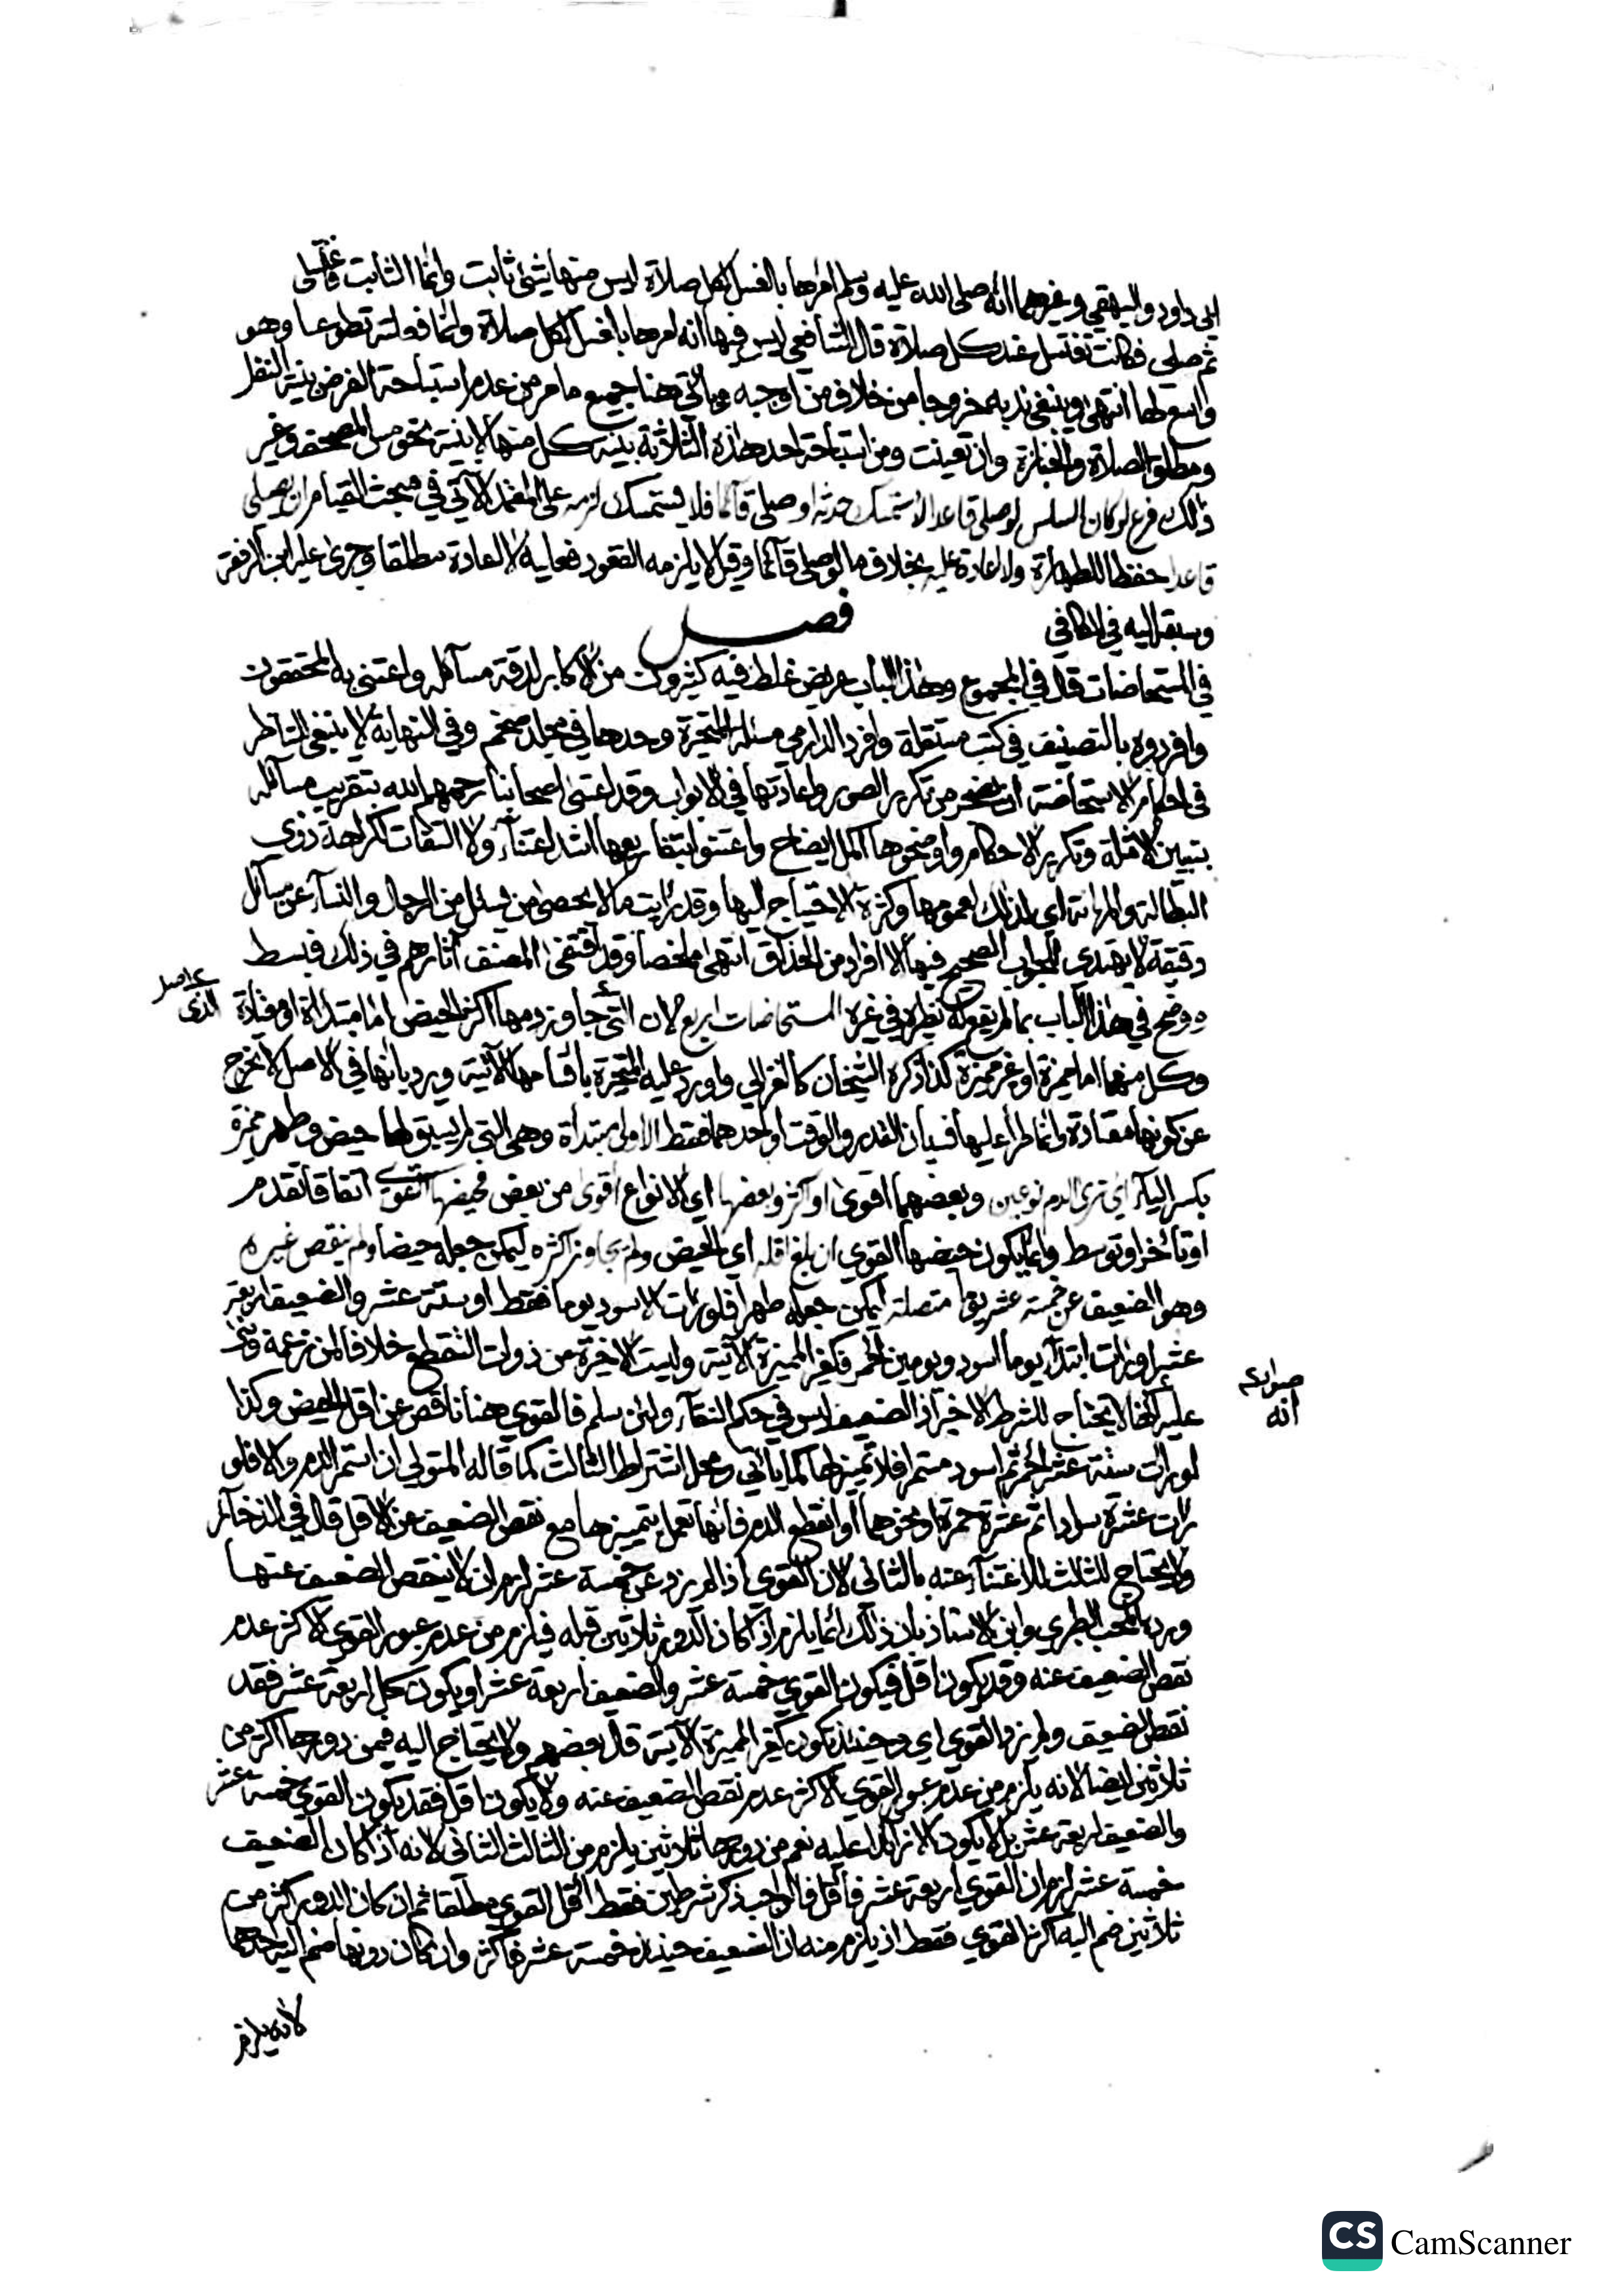 ابي داود والبيهقي وغيرهما انه صلى الله عليه وسلم امرها بالغسل لكل صلاة ليس منها شئ ثابت وانما الثابت فاغتسلي
ثم صلي فكانت تغتسل عند كل صلاة قال الشافعي ليس فيها انه امرها بالغسل لكل صلاة وانما فعلته تطوعا وهو
واسع لها انتهى وينبغي ندبه خروجا من خلاف من اوجبه وياتي هنا جميع ما مر من عدم استباحة الفرض بنية النفل
ومطلق الصلاة والجنازة وان تعينت ومن استباحة احد هذه الثلاثة بنية كل منها لا بنية نحو مس المصحف وغير
ذلك فرع لو كان السلس لو صلى قاعدا لاستمسك حدثه او صلى قائما فلا يستمسك لزمه على المعتمد الآتي في مبحث القيام ان يصلي
قاعدا حفظا للطهارة ولا اعادة عليه بخلاف ما لو صلى قائما وقيل لا يلزمه القعود فعليه لا اعادة مطلقا وجرى عليه ابن الرفعة
وسبقه اليه في الكافي
فصل
في المستحاضات قال في المجموع وهذا الباب عريض غلط فيه كثيرون من الاكابر لدقة مسآئله واعتنى به المحققون
وافردوه بالتصنيف في كتب مستقلة وافرد الدارمي مسئلة المتحيرة وحدها في مجلد ضخم وفي النهاية لا ينبغي للناظر
في احكام الاستحاضة ان يضجر من تكرير الصور واعادتها في الابواب وقد اعتنى اصحابنا رحمهم الله بتقريب مسآئله
بتبيين الامثلة وتكرير الاحكام واوضحوها اكمل ايضاح واعتنوا بتفاريعها اشد اعتنآء ولا التفات لكراهة ذوي
البطالة والمهانة اي لذلك لعمومها وكثرة الاحتياج اليها وقد رأيت ما لا يحصى من يسئل من الرجال والنسآء عن مسآئل
دقيقة لا يهتدي للجواب الصحيح فيها الا افراد من الحذاق انتهى ملخصا وقد اقتفى المصنف آثارهم في ذلك فبسط
ووضح في هذا الباب بما لم يقع له نظيره في غيره المستحاضات اربع لان التي جاوز دمها اكثر الحيض اما مبتدأة او معتادة
الذي
وكل منهما اما مميزة او غير مميزة كذا ذكره الشيخان كالغزالي واورد عليه المتحيرة باقسامها الآتية ويرد بانها في الاصل لا تخرج
عن كونها معتادة وانما طرأ عليها نسيان القدر والوقت او احدهما فقط الاولى مبتدأة وهي التي لم يسبق لها حيض وطهر مميزة
بكسر اليآء اي ترى الدم نوعين وبعضهما اقوى او اكثر وبعضها اي الانواع اقوى من بعض فحيضها القوي اتفاقا تقدم
او تأخر او توسط وانما يكون حيضها القوي ان بلغ اقله اي الحيض ولم يجاوز اكثره ليمكن جعله حيضا ولم ينقص غيره
وهو الضعيف عن خمسة عشر يوما متصلة ليمكن جعله طهرا فلو رات الاسود يوما فقط او ستة عشر والضعيف اربعة
عشر او رات ابتدآء يوما اسود ويومين احمر فكغير المميزة الآتية وليست الاخيرة من ذوات التقطع خلافا لمن زعمه
انه
عليه انها لا تحتاج للشرط الاخير اذ الضعيف ليس في حكم النقآء ولئن سلم فالقوي هنا ناقص عن اقل الحيض وكذا
لو رات ستة عشر احمر ثم اسود مستمرا فلا تمييز لها كما ياتي ومحل اشتراط الثالث كما قاله المتولي ان استمر الدم والا فلو
رات عشرة سوادا ثم عشرة حمرة او نحوها وانقطع الدم فانها تعمل بتمييزها مع نقص الضعيف عن الاقل قال في الذخآئر
ولا يحتاج للثالث للاغتنآء عنه بالثاني لان القوي اذا لم يزد عن خمسة عشر لزم ان لا ينقص الضعيف عنها
ورده المحب الطبري وابن الاستاذ بان ذلك انما يلزم اذا كان الدور ثلاثين قبله فيلزم من عدم عبور القوي الاكثر عدم
نقص الضعيف عنه وقد يكون اقل فيكون القوي خمسة عشر والضعيف اربعة عشر او يكون كل اربعة عشر فقد
نقص الضعيف ولم يزد القوي اي وحينئذ تكون كغير المميزة الآتية قال بعضهم ولا يحتاج اليه فيمن دورها اكثر من
ثلاثين ايضا لانه يلزم من عدم عبور القوي الاكثر عدم نقص الضعيف عنه ولا يكون اقل فقد يكون القوي خمسة عشر
والضعيف اربعة عشر بل لا يكون الا زائدا عليه نعم من دورها ثلاثين يلزم من الثالث الثاني لانه اذا كان الضعيف
خمسة عشر لزم ان القوي اربعة عشر فاقل فالواجب ذكر شرطين فقط اقل القوي مطلقا ثم ان كان الدور اكثر من
ثلاثين ضم اليه اكثر القوي فقط اذ يلزم منه ان الضعيف حينئذ خمسة عشر فاكثر وان كان دونها ضم اليه احدهما
لانه يلزم
CS CamScanner